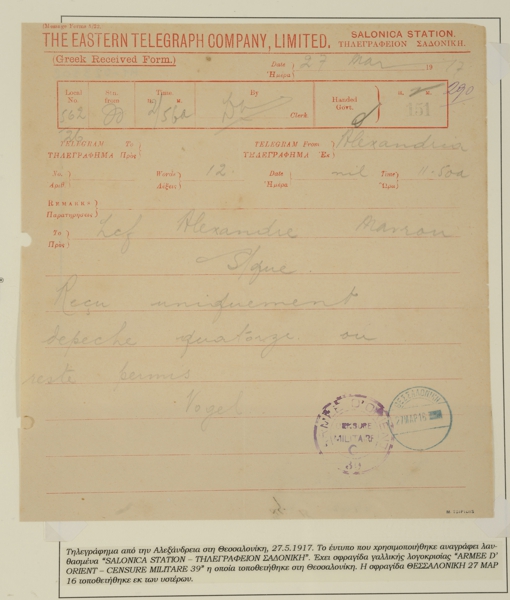 THE EASTERN TELEGRAPH COMPANY, LIMITED.
SALONICA STATION.
ΤΗΛΕΓΡΑΦΕΙΟΝ ΣΑΔΟΝΙΚΗ.
(Greek Received Form.)
Date 27 Mar 19 17
Ἡμέρα
Local No. 562
Stn. from
Time
By
Clerk
Handed Govt.
151
290
TELEGRAM To
ΤΗΛΕΓΡΑΦΗΜΑ Πρὸς
TELEGRAM From Alexandria
ΤΗΛΕΓΡΑΦΗΜΑ Ἐκ
No. Words 12. Date nil Time 11.50a
Ἀριθ. Λέξεις Ἡμέρα Ὥρα
REMARKS
Παρατηρήσεις
To Alexandre
Πρὸς
S/que.
Reçu uniquement
depeche quatorze ou
reste permis
ARMEE D'ORIENT
CENSURE
MILITARE
C
39
ΘΕΣΣΑΛΟΝΙΚΗ
27 ΜΑΡ 16
Τηλεγράφημα από την Αλεξάνδρεια στη Θεσσαλονίκη, 27.5.1917. Το έντυπο που χρησιμοποιήθηκε αναγράφει λαν-
θασμένα "SALONICA STATION – ΤΗΛΕΓΡΑΦΕΙΟΝ ΣΑΔΟΝΙΚΗ". Έχει σφραγίδα γαλλικής λογοκρισίας "ARMEE D'
ORIENT – CENSURE MILITARE 39" η οποία τοποθετήθηκε στη Θεσσαλονίκη. Η σφραγίδα ΘΕΣΣΑΛΟΝΙΚΗ 27 ΜΑΡ
16 τοποθετήθηκε εκ των υστέρων.